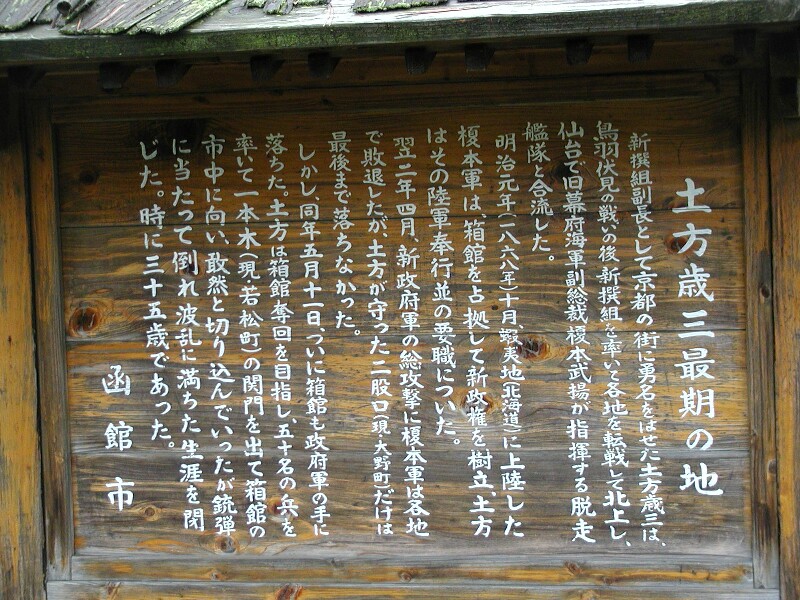 土方歳三最期の地
新撰組副長として京都の街に勇名をはせた土方歳三は、
鳥羽伏見の戦いの後、新撰組を率いて各地を転戦して北上し、
仙台で旧幕府海軍副総裁榎本武揚が指揮する脱走
艦隊と合流した。
明治元年(一八六八年)十月、蝦夷地(北海道)に上陸した
榎本軍は、箱館を占拠して新政権を樹立、土方
はその陸軍奉行並の要職についた。
翌二年四月、新政府軍の総攻撃に榎本軍は各地
で敗退したが、土方が守った二股口(現・大野町)だけは
最後まで落ちなかった。
しかし、同年五月十一日、ついに箱館も政府軍の手に
落ちた。土方は箱館奪回を目指し、五十名の兵を
率いて一本木(現・若松町)の関門を出て箱館の
市中に向い、敢然と切り込んでいったが銃弾
に当たって倒れ波乱に満ちた生涯を閉
じた。時に三十五歳であった。
函館市